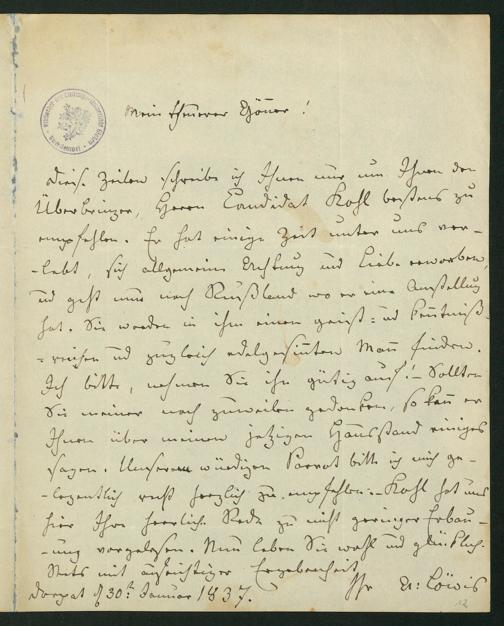 Mein theurer Gönner!
Diese Zeilen schreibe ich Ihnen nur um Ihnen den
Überbringer, Herrn Candidat Kohl bestens zu
empfehlen. Er hat einige Zeit unter uns ver-
-lebt, sich allgemeine Achtung und Liebe erworben,
und geht nun nach Rußland wo er eine Anstellung
hat. Sie werden in ihm einen geist= und kentniß-
=reichen und zugleich edelgesinten Mañ finden.
Ich bitte, nehmen Sie ihn gütig auf! – Sollten
Sie meiner noch zuweilen gedenken, so kañ er
Ihnen über meinen jetzigen Hausstand einiges
sagen. Unserem würdigen Parrot bitte ich mich ge-
-legentlich recht herzlich zu empfehlen. – Kohl hat uns
hier Ihre herrliche Rede zu nicht geringer Erbau-
-ung vorgelesen. Nun leben Sie wohl und glücklich.
Stets mit aufrichtiger Ergebenheit
Ihr A: Löwis
Dorpat d 30t Januar 1837.
12